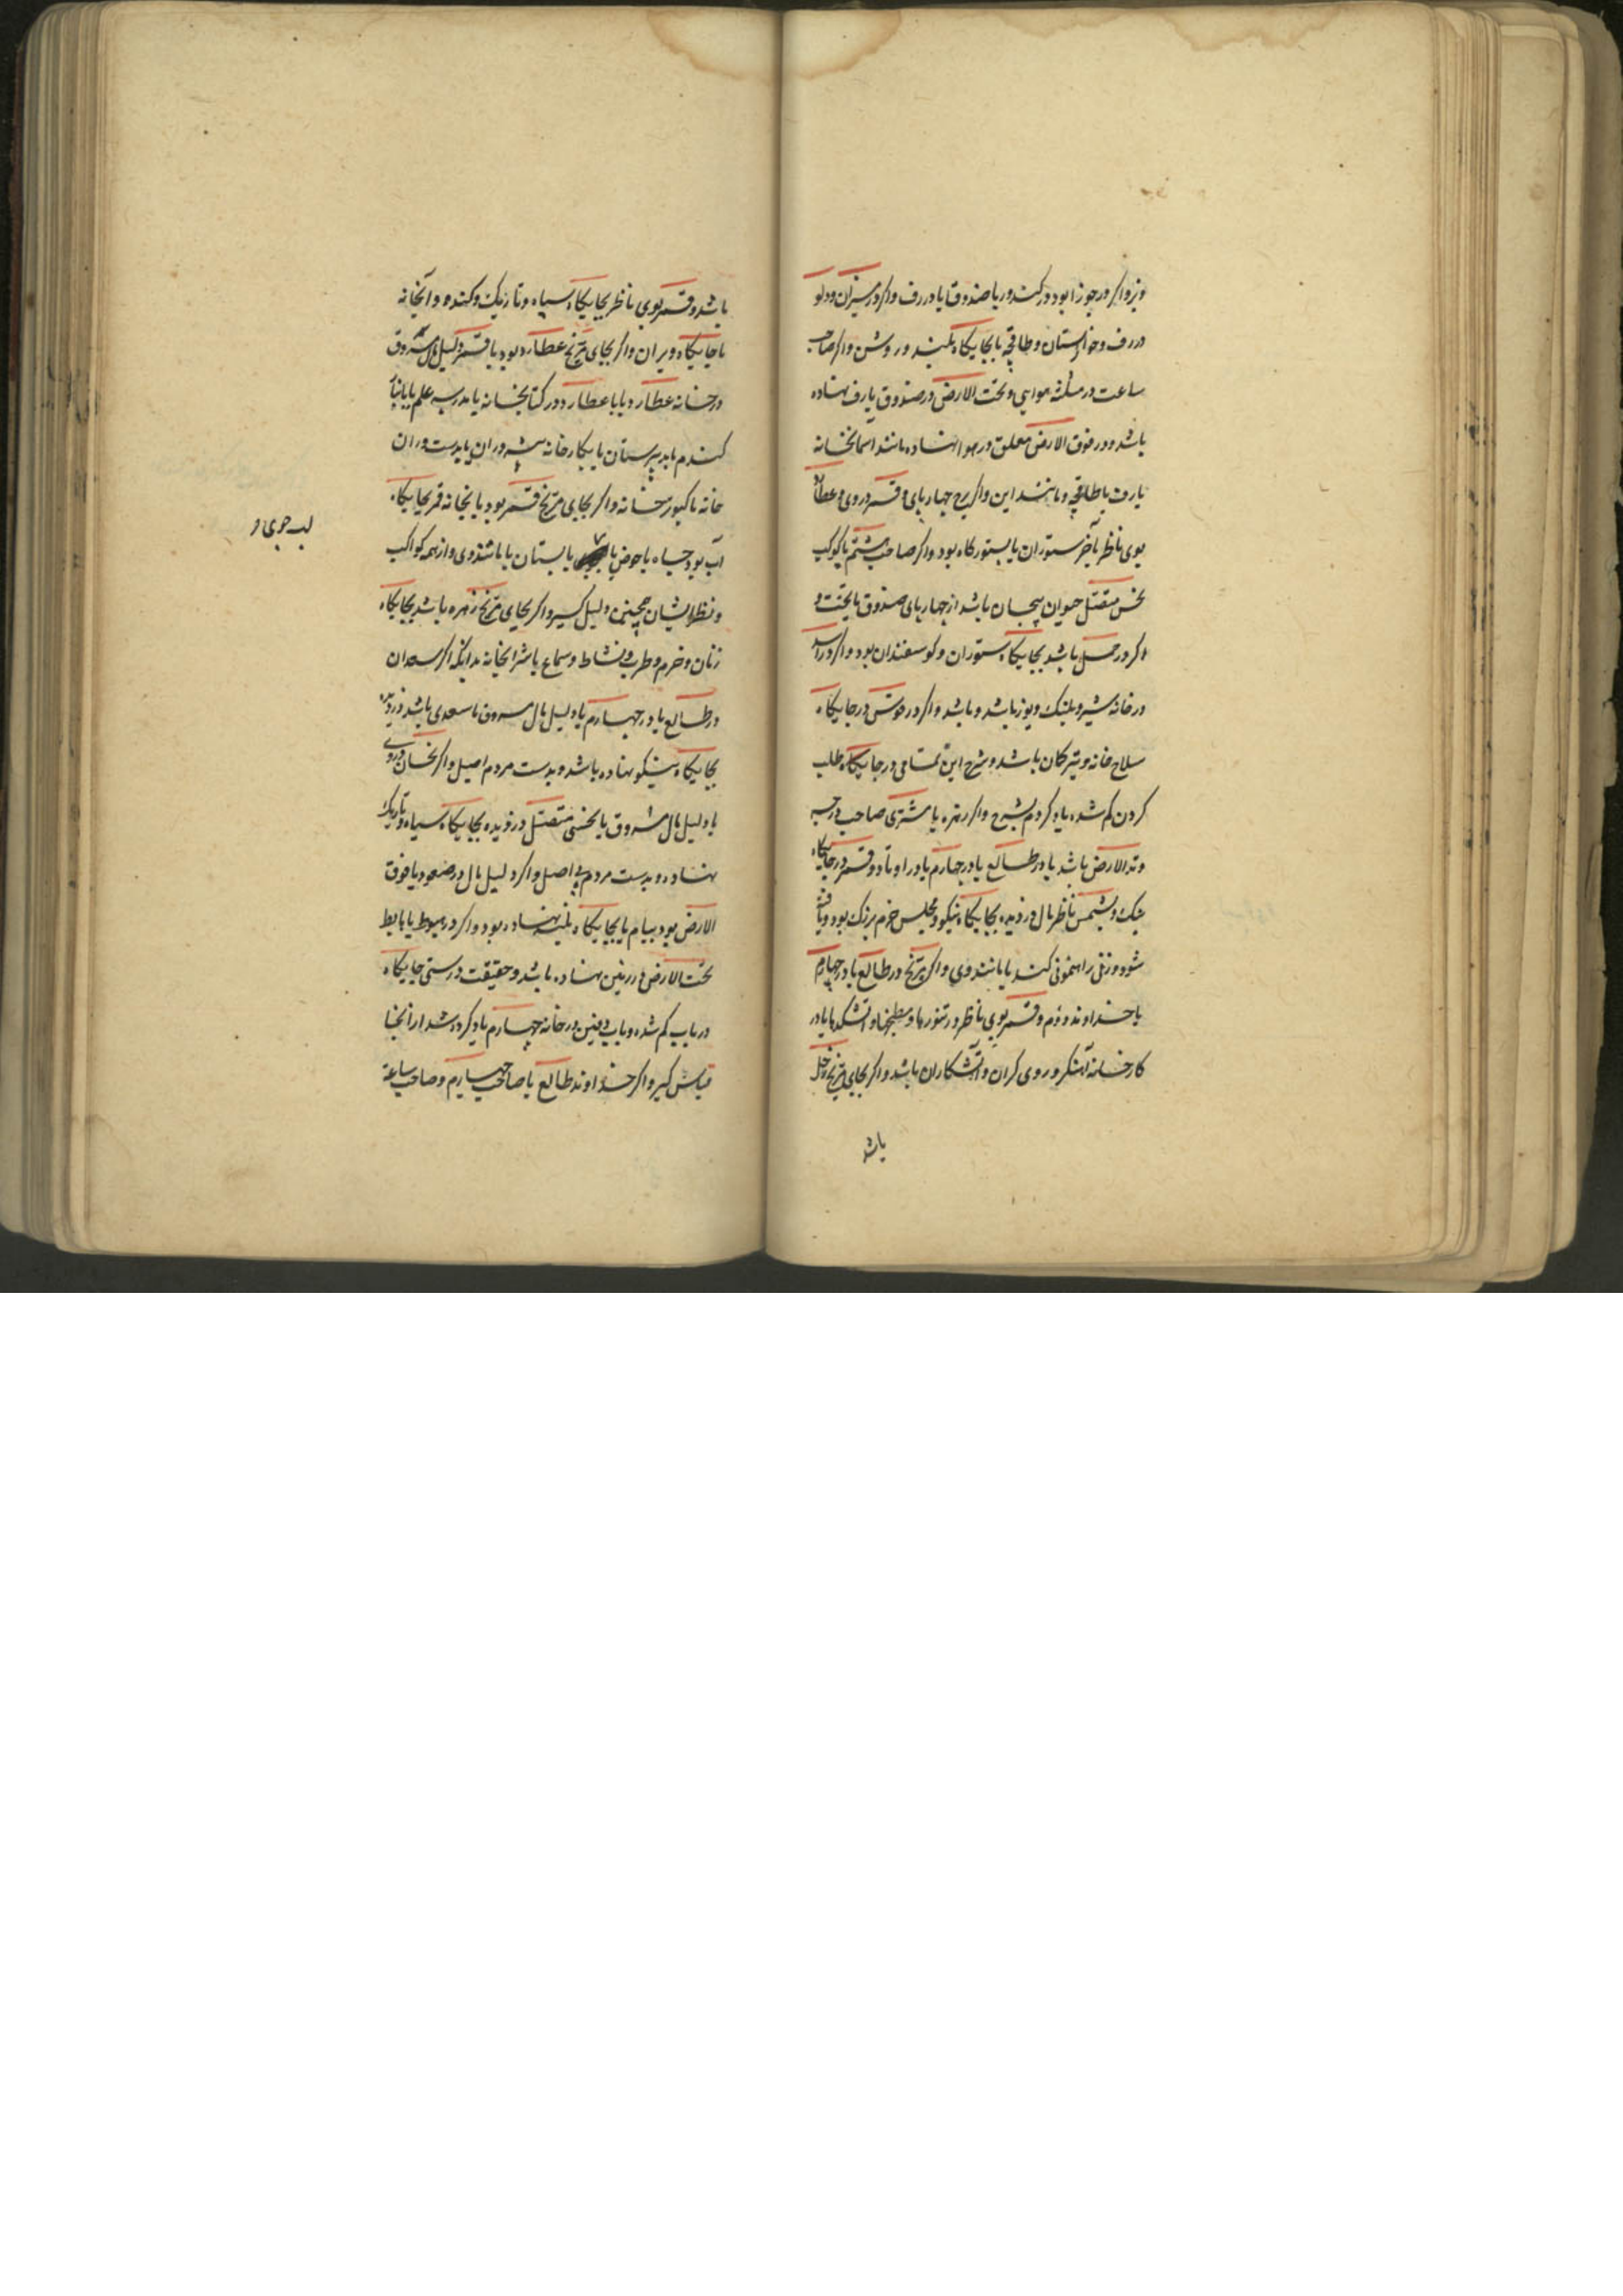 ویز و اگر در جوزا بود در کندور یا صندوق یا در رف و اگر در میزان و دلو
در رف و خوانستان و طاقچه یا بجایگاه بلند و روشن و اگر صاحب
ساعت در مثلثه هوایی و تحت الارض در صندوق یا رف نهاده
باشد و در فوق الارض معلق در هوا نهاده مانند آسمانخانه
یا رف یا طاقچه و مانند این و اگر برج چهارپای و قمر در وی و عطارد
بوی ناظر بآخر ستوران یا بستورگاه بود و اگر صاحب هشتم با کوکب
نحس متصل حیوان بیجان باشد از چهارپای صندوق یا تخت و
اگر در حمل باشد بجایگاه ستوران و گوسفندان بود و اگر در اسد
در خانه شیر و پلنگ و یوز باشد و باشد و اگر در قوس در جایگاه
سلاح خانه و تیر کمان باشد و شرح این تمامی در جایگاه طلب
کردن گم شده یاد کردم بشرح و اگر زهره یا مشتری صاحب درجه
وتد الارض باشد یا در طالع یا در چهارم یا در اوتاد و قمر در جایگاه
نیک و بشمس ناظر مال دزدیده بجایگاه نیکو و مجلس خرم بزرگ بود و یافته
شود و زنی راهنمونی کند یا مانند وی و اگر مریخ در طالع یا در چهارم
یا خداوند دوم و قمر بوی ناظر در تنورها و مطبخها و آتشکدها یا در
کارخانه آهنگر و روی گران و آتشکاران باشد و اگر بجای مریخ زحل
باشد
باشد و قمر بوی ناظر بجایگاه سیاه و تاریک و گنده و آبخانه
یا جایگاه ویران و اگر بجای مریخ عطارد بود یا قمر دلیل مال مسروق
در خانه عطارد یا با عطارد در کتابخانه یا مدرسه علم یا بانبار
گندم یا بدبیرستان یا بکارخانه پیشه وران یا بدست وران
خانه یا کبوترخانه و اگر بجای مریخ قمر بود یا بخانه قمر بجایگاه
آب بود چاه یا حوض یا یا بستان یا مانند وی و از همه کواکب
لب جوی و
و نظر ایشان همچنین دلیل گیر و اگر بجای مریخ زهره باشد بجایگاه
زنان و خرم و طرب و نشاط و سماع یا شرابخانه بدانکه اگر سعدان
در طالع یا در چهارم یا دلیل مال مسروق با سعدی باشد دزدیده
بجایگاه نیکو نهاده باشد و بدست مردم اصیل و اگر نحسان در وی
یا دلیل مال مسروق با نحسی متصل دزدیده بجایگاه سیاه و تاریک
نهاده و بدست مردم بی اصل و اگر دلیل مال در صعود یا فوق
الارض بود ببام یا بجایگاه بلند نهاده بود و اگر در هبوط یا هابط
تحت الارض در زمین نهاده باشد و حقیقت درستی جایگاه
در باب گم شده و باب دفین در خانه چهارم یاد کرده شد از آنجا
قیاس گیر و اگر خداوند طالع یا صاحب چهارم و صاحب ساعة